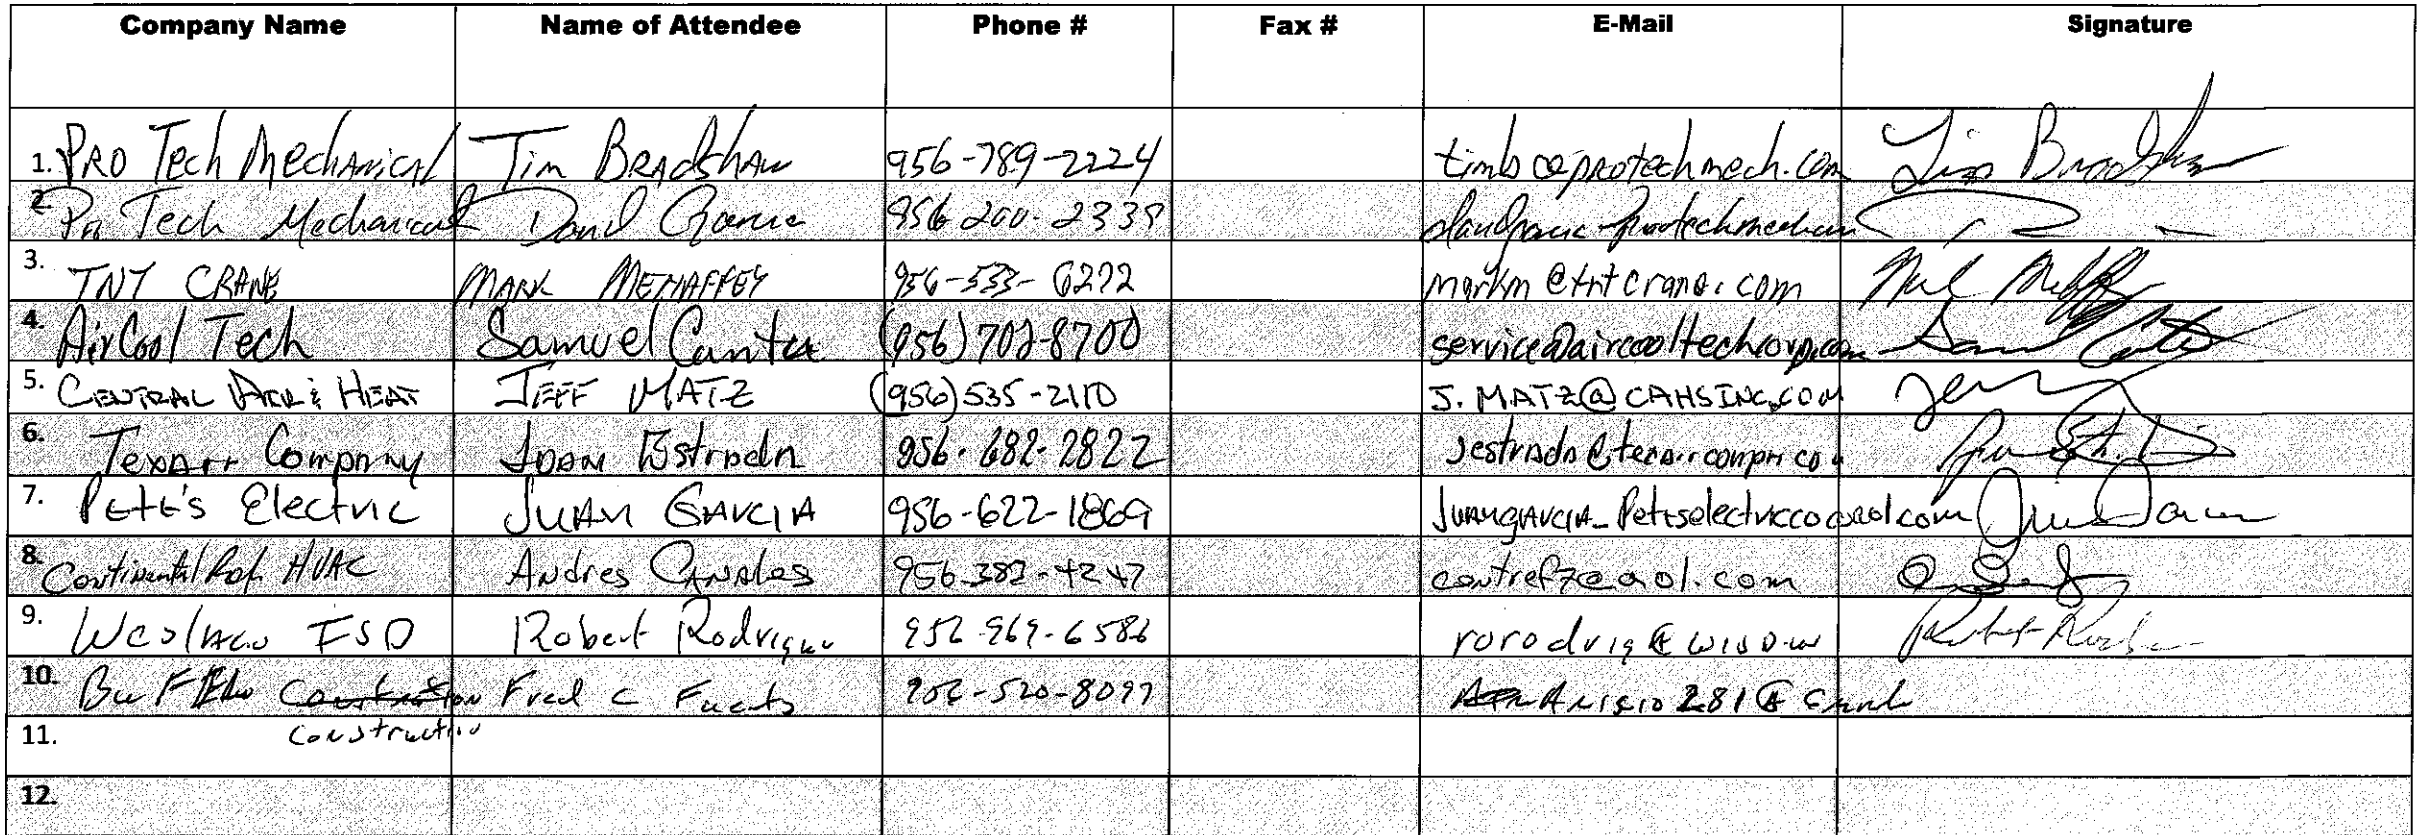 Company Name Name of Attendee Phone # Fax # E-Mail Signature
1. PRO Tech Mechanical Tim BRADShAW 956-789-2224 timb@protechmech.com Tim Bradshaw
2. Pro Tech Mechanical David Garcia 956 200-2339
3. TNT CRANE MARK MEHAFFEY 956-533-6272 markm@tntcrane.com
4. AirCool Tech Samuel Cantu (956) 702-8700 service@aircooltechcorp.com
5. CENTRAL AIR & HEAT JEFF MATZ (956) 535-2110 J.MATZ@CAHSINC.COM
6. Texair Company Juan Estrada 956-682-2822
7. PETE'S Electric JUAN GARCIA 956-622-1869 JUANGARCIA_Peteselectricco@aol.com
8. Continental Ref. HVAC Andres Canales 956 383-4247 contref7@aol.com
9. Weslaco ISD Robert Rodriguez 956-969-6586 rorodrig@
10. Construction Fred C 956-520-8097 281@
11. Construction
12.